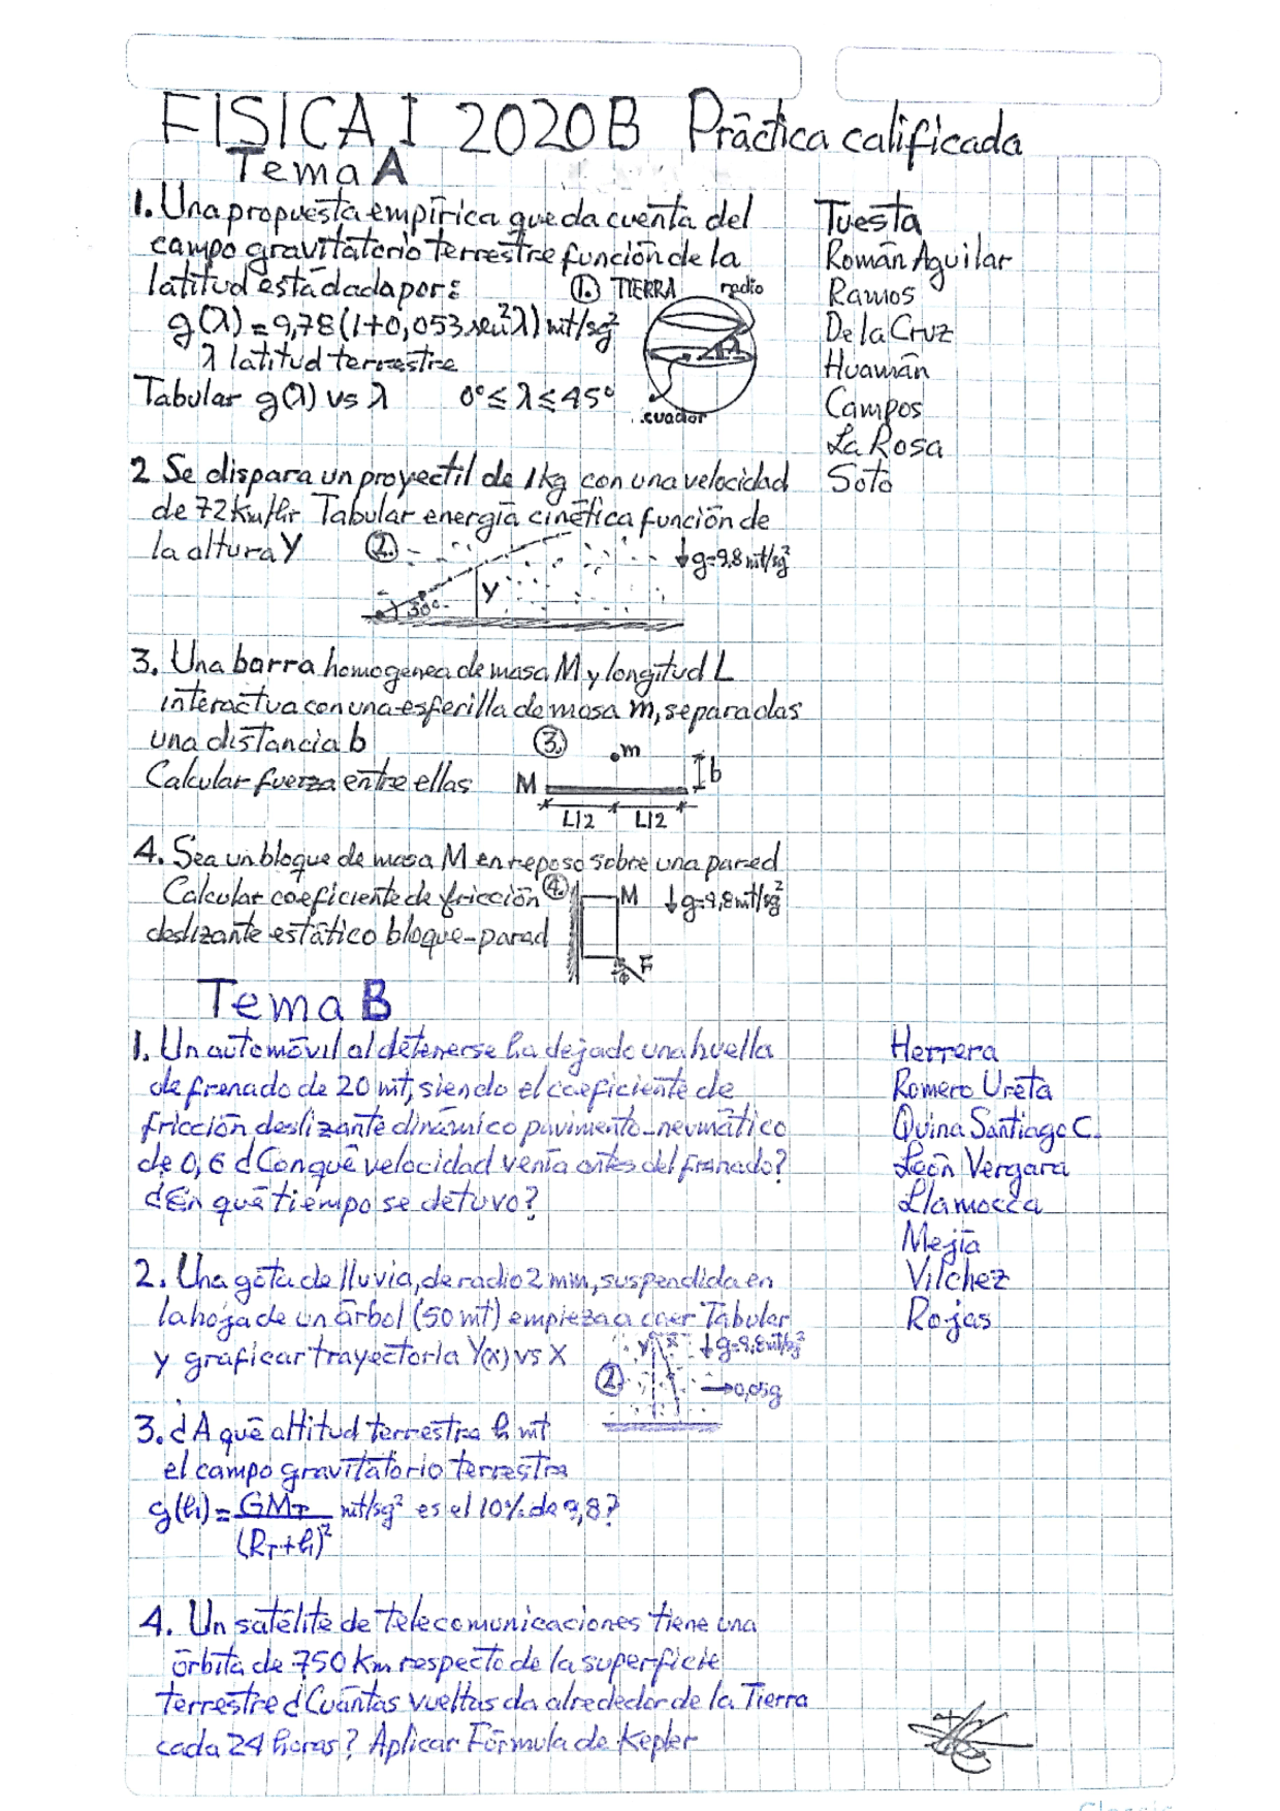 FISICA I 2020B Práctica calificada
Tema A
1. Una propuesta empírica que da cuenta del
campo gravitatorio terrestre función de la
latitud está dada por:
g(λ) = 9,78(1+0,053 sen²λ) mt/sg²
λ latitud terrestre
Tabular g(λ) vs λ 0° ≤ λ ≤ 45°
1. TIERRA radio
cuador
Tuesta
Román Aguilar
Ramos
De la Cruz
Huamán
Campos
La Rosa
Soto
2 Se dispara un proyectil de 1kg con una velocidad
de 72 Km/hr Tabular energía cinética función de
la altura Y
2. 30° Y ↓g=9,8 mt/sg²
3. Una barra homogenea de masa M y longitud L
interactua con una esferilla de masa m, separadas
una distancia b
Calcular fuerza entre ellas
3. m
M b
L/2 L/2
4. Sea un bloque de masa M en reposo sobre una pared
Calcular coeficiente de fricción
deslizante estático bloque-pared
4. M ↓g=9,8 mt/sg²
F
Tema B
1. Un automóvil al detenerse ha dejado una huella
de frenado de 20 mt, siendo el coeficiente de
fricción deslizante dinámico pavimento-neumático
de 0,6 ¿Con qué velocidad venía antes del frenado?
¿En qué tiempo se detuvo?
Herrera
Romero Ureta
Quina Santiago C.
León Vergara
Llamocca
Mejía
Vilchez
Rojas
2. Una gota de lluvia, de radio 2 mm, suspendida en
la hoja de un árbol (50 mt) empieza a caer Tabular
y graficar trayectoria Y(x) vs X
2. Y X ↓g=9,8 mt/sg²
→0,05g
3. ¿A qué altitud terrestre h mt
el campo gravitatorio terrestre
g(h) = GM_T/(R_T+h)² mt/sg² es el 10% de 9,8?
4. Un satélite de telecomunicaciones tiene una
órbita de 750 Km respecto de la superficie
terrestre ¿Cuántas vueltas da alrededor de la Tierra
cada 24 horas? Aplicar Fórmula de Kepler